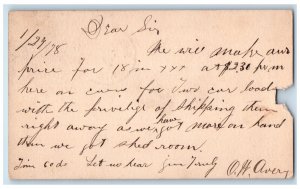 1/24/78 Dear Sir
We will make our
price for 18 in xxx at $2.30 per m
here on cars for two car loads
with the privilige of Shipping them
right away as we have got more on hand
than we got shed room.
Let us hear Yours Truly O. H. Avery